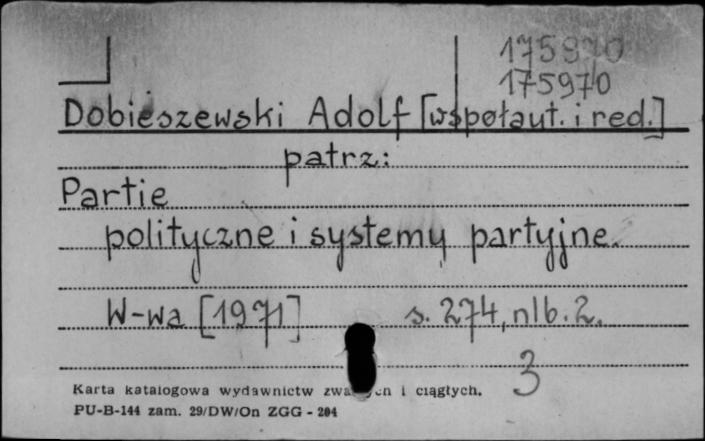 175970
175970
Dobieszewski Adolf [współaut. i red.]
patrz:
Partie
polityczne i systemy partyjne.
W-wa [1971] s. 274, nlb. 2.
3
Karta katalogowa wydawnictw i ciągłych.
PU-B-144 zam. 29/DW/On ZGG - 204